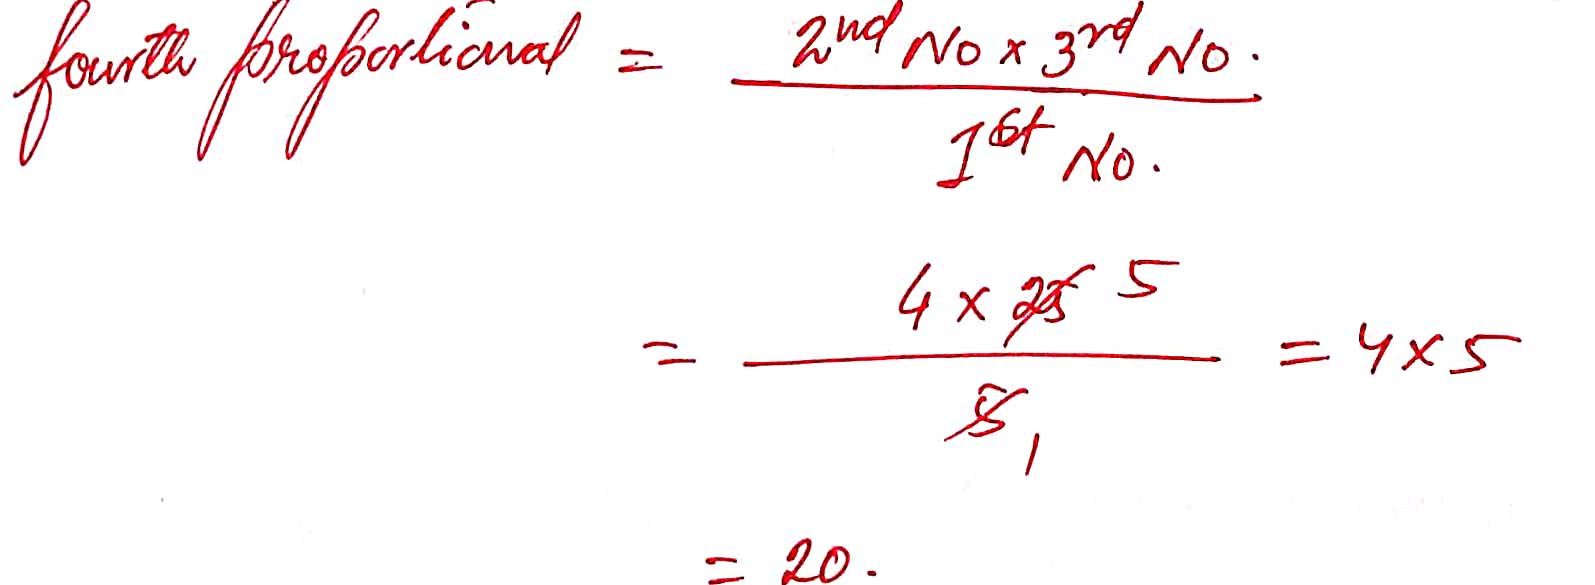 fourth proportional = 2nd No x 3rd No.
1st No.
= 4 x 25 5 = 4 x 5
5 1
= 20.